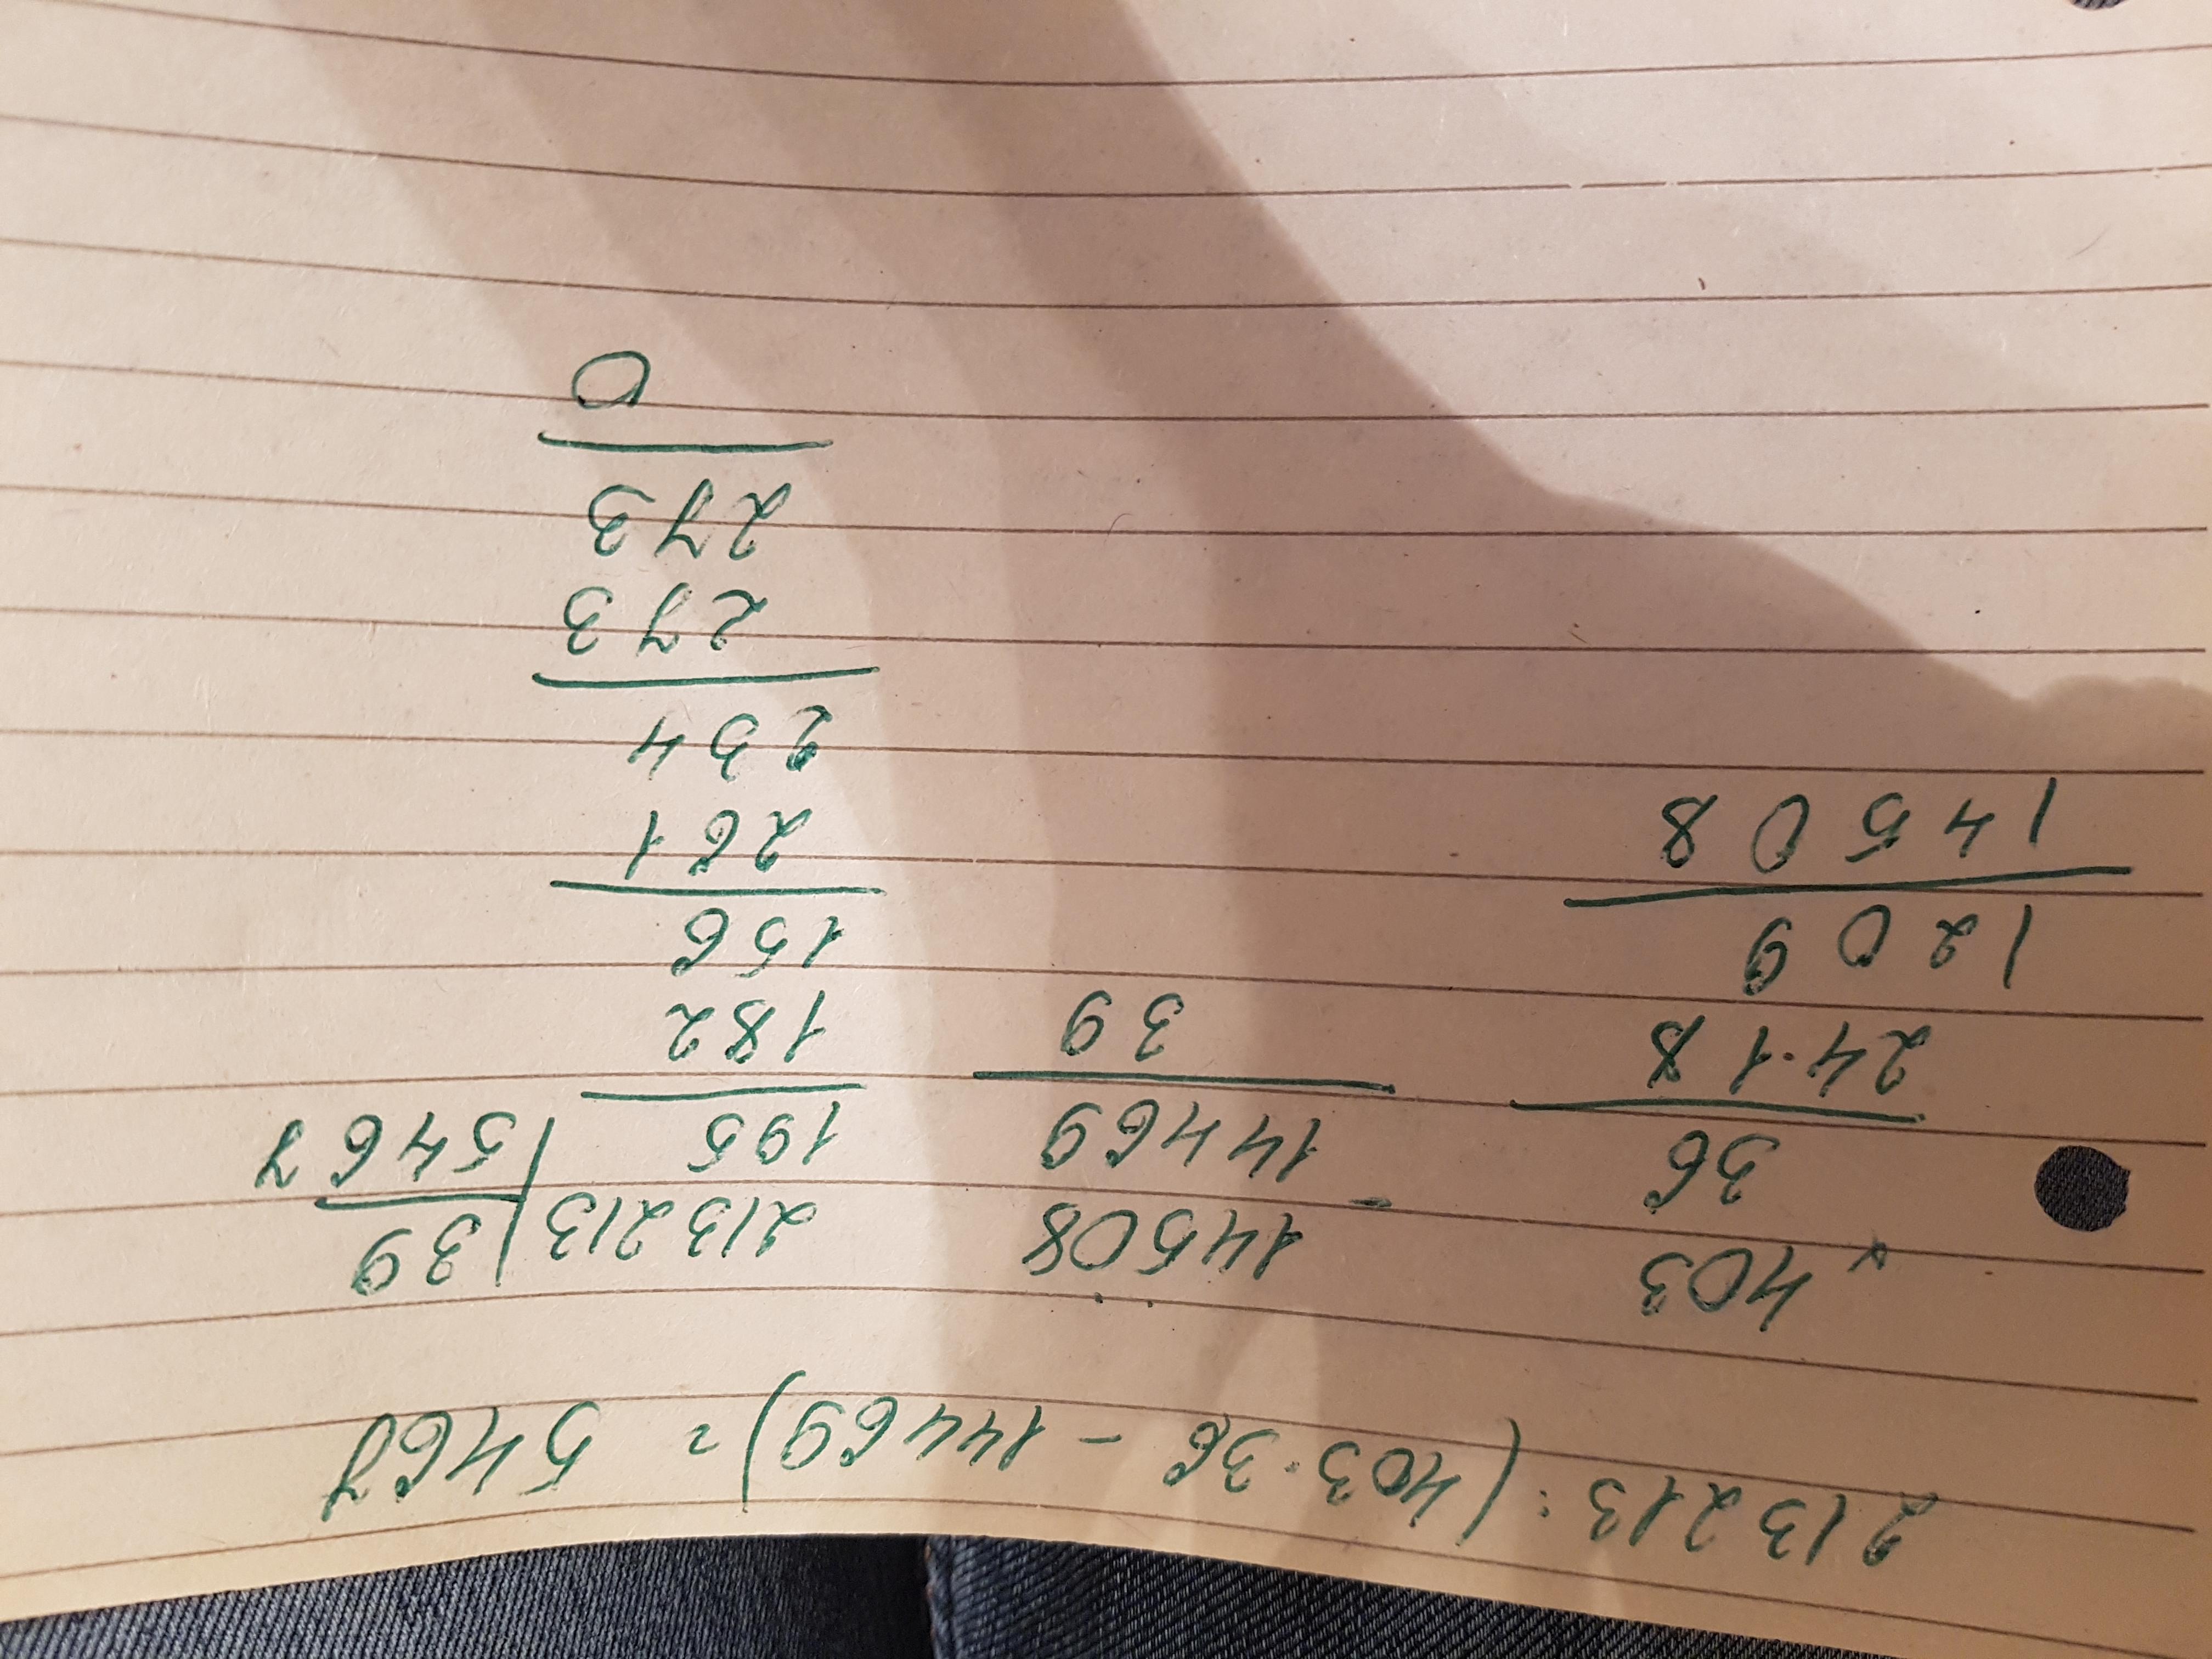 213213 : (403 · 36 - 14469) = 5467
× 403
36
24·18
1209
14508
- 14508
14469
39
213213 | 39
195 | 5467
182
156
261
234
273
273
0